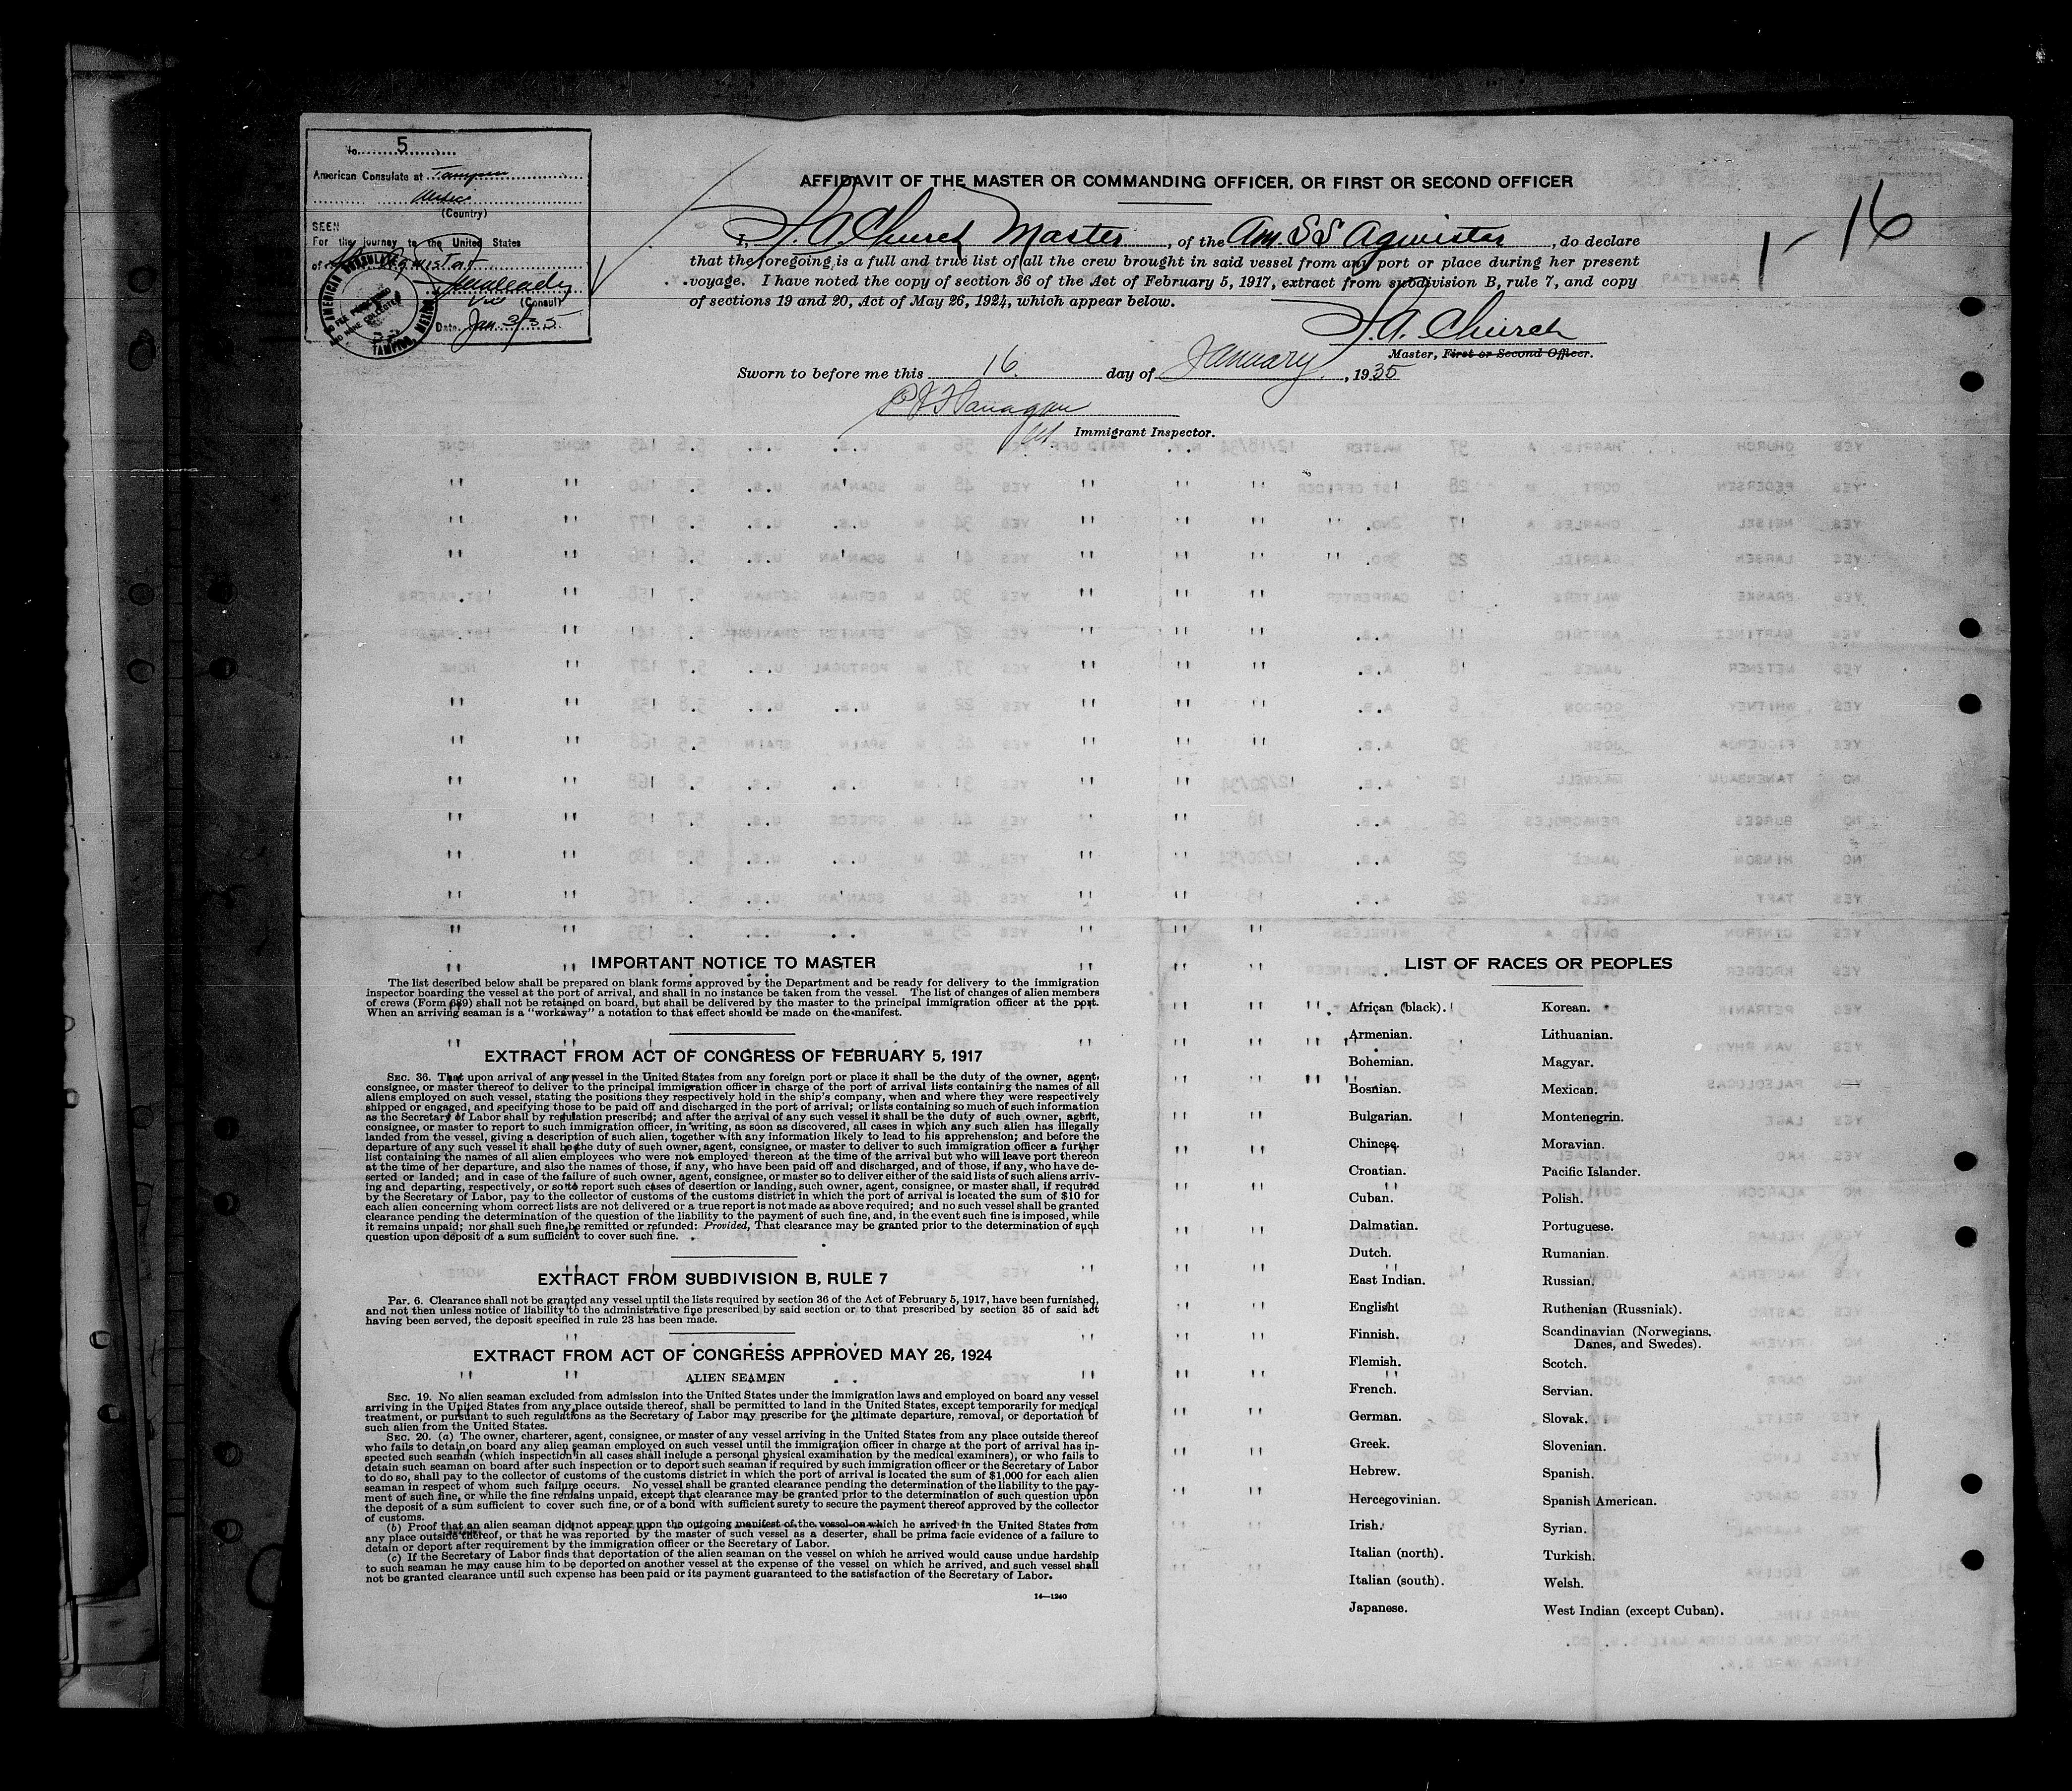 No. 5
American Consulate at Tampico
Mexico
(Country)
SEEN
For the journey to the United States
of Agwistar
Vice (Consul)
Date. Jan. 3/35
AMERICAN CONSULATE
NO FEE PRESCRIBED
AND NONE COLLECTED
TAMPICO, MEXICO
1-16
AFFIDAVIT OF THE MASTER OR COMMANDING OFFICER, OR FIRST OR SECOND OFFICER
I, H.A. Church Master, of the Am. SS Agwistar, do declare
that the foregoing is a full and true list of all the crew brought in said vessel from any port or place during her present
voyage. I have noted the copy of section 36 of the Act of February 5, 1917, extract from subdivision B, rule 7, and copy
of sections 19 and 20, Act of May 26, 1924, which appear below.
H.A. Church
Master, First or Second Officer.
Sworn to before me this 16 day of January, 1935
P J Flanagan
Immigrant Inspector.
IMPORTANT NOTICE TO MASTER
The list described below shall be prepared on blank forms approved by the Department and be ready for delivery to the immigration
inspector boarding the vessel at the port of arrival, and shall in no instance be taken from the vessel. The list of changes of alien members
of crews (Form 689) shall not be retained on board, but shall be delivered by the master to the principal immigration officer at the port.
When an arriving seaman is a "workaway" a notation to that effect should be made on the manifest.
EXTRACT FROM ACT OF CONGRESS OF FEBRUARY 5, 1917
SEC. 36. That upon arrival of any vessel in the United States from any foreign port or place it shall be the duty of the owner, agent,
consignee, or master thereof to deliver to the principal immigration officer in charge of the port of arrival lists containing the names of all
aliens employed on such vessel, stating the positions they respectively hold in the ship's company, when and where they were respectively
shipped or engaged, and specifying those to be paid off and discharged in the port of arrival; or lists containing so much of such information
as the Secretary of Labor shall by regulation prescribe; and after the arrival of any such vessel it shall be the duty of such owner, agent,
consignee, or master to report to such immigration officer, in writing, as soon as discovered, all cases in which any such alien has illegally
landed from the vessel, giving a description of such alien, together with any information likely to lead to his apprehension; and before the
departure of any such vessel it shall be the duty of such owner, agent, consignee, or master to deliver to such immigration officer a further
list containing the names of all alien employees who were not employed thereon at the time of the arrival but who will leave port thereon
at the time of her departure, and also the names of those, if any, who have been paid off and discharged, and of those, if any, who have de-
serted or landed; and in case of the failure of such owner, agent, consignee, or master so to deliver either of the said lists of such aliens arriv-
ing and departing, respectively, or so to report such cases of desertion or landing, such owner, agent, consignee, or master shall, if required
by the Secretary of Labor, pay to the collector of customs of the customs district in which the port of arrival is located the sum of $10 for
each alien concerning whom correct lists are not delivered or a true report is not made as above required; and no such vessel shall be granted
clearance pending the determination of the question of the liability to the payment of such fine, and, in the event such fine is imposed, while
it remains unpaid; nor shall such fine be remitted or refunded: Provided, That clearance may be granted prior to the determination of such
question upon deposit of a sum sufficient to cover such fine.
EXTRACT FROM SUBDIVISION B, RULE 7
Par. 6. Clearance shall not be granted any vessel until the lists required by section 36 of the Act of February 5, 1917, have been furnished,
and not then unless notice of liability to the administrative fine prescribed by said section or to that prescribed by section 35 of said act
having been served, the deposit specified in rule 23 has been made.
EXTRACT FROM ACT OF CONGRESS APPROVED MAY 26, 1924
ALIEN SEAMEN
SEC. 19. No alien seaman excluded from admission into the United States under the immigration laws and employed on board any vessel
arriving in the United States from any place outside thereof, shall be permitted to land in the United States, except temporarily for medical
treatment, or pursuant to such regulations as the Secretary of Labor may prescribe for the ultimate departure, removal, or deportation of
such alien from the United States.
SEC. 20. (a) The owner, charterer, agent, consignee, or master of any vessel arriving in the United States from any place outside thereof
who fails to detain on board any alien seaman employed on such vessel until the immigration officer in charge at the port of arrival has in-
spected such seaman (which inspection in all cases shall include a personal physical examination by the medical examiners), or who fails to
detain such seaman on board after such inspection or to deport such seaman if required by such immigration officer or the Secretary of Labor
to do so, shall pay to the collector of customs of the customs district in which the port of arrival is located the sum of $1,000 for each alien
seaman in respect of whom such failure occurs. No vessel shall be granted clearance pending the determination of the liability to the pay-
ment of such fine, or while the fine remains unpaid, except that clearance may be granted prior to the determination of such question upon
the deposit of a sum sufficient to cover such fine, or of a bond with sufficient surety to secure the payment thereof approved by the collector
of customs.
(b) Proof that an alien seaman did not appear upon the outgoing manifest of the vessel on which he arrived in the United States from
any place outside thereof, or that he was reported by the master of such vessel as a deserter, shall be prima facie evidence of a failure to
detain or deport after requirement by the immigration officer or the Secretary of Labor.
(c) If the Secretary of Labor finds that deportation of the alien seaman on the vessel on which he arrived would cause undue hardship
to such seaman he may cause him to be deported on another vessel at the expense of the vessel on which he arrived, and such vessel shall
not be granted clearance until such expense has been paid or its payment guaranteed to the satisfaction of the Secretary of Labor.
14—1240
LIST OF RACES OR PEOPLES
African (black).
Armenian.
Bohemian.
Bosnian.
Bulgarian.
Chinese.
Croatian.
Cuban.
Dalmatian.
Dutch.
East Indian.
English.
Finnish.
Flemish.
French.
German.
Greek.
Hebrew.
Hercegovinian.
Irish.
Italian (north).
Italian (south).
Japanese.
Korean.
Lithuanian.
Magyar.
Mexican.
Montenegrin.
Moravian.
Pacific Islander.
Polish.
Portuguese.
Rumanian.
Russian.
Ruthenian (Russniak).
Scandinavian (Norwegians,
Danes, and Swedes).
Scotch.
Servian.
Slovak.
Slovenian.
Spanish.
Spanish American.
Syrian.
Turkish.
Welsh.
West Indian (except Cuban).